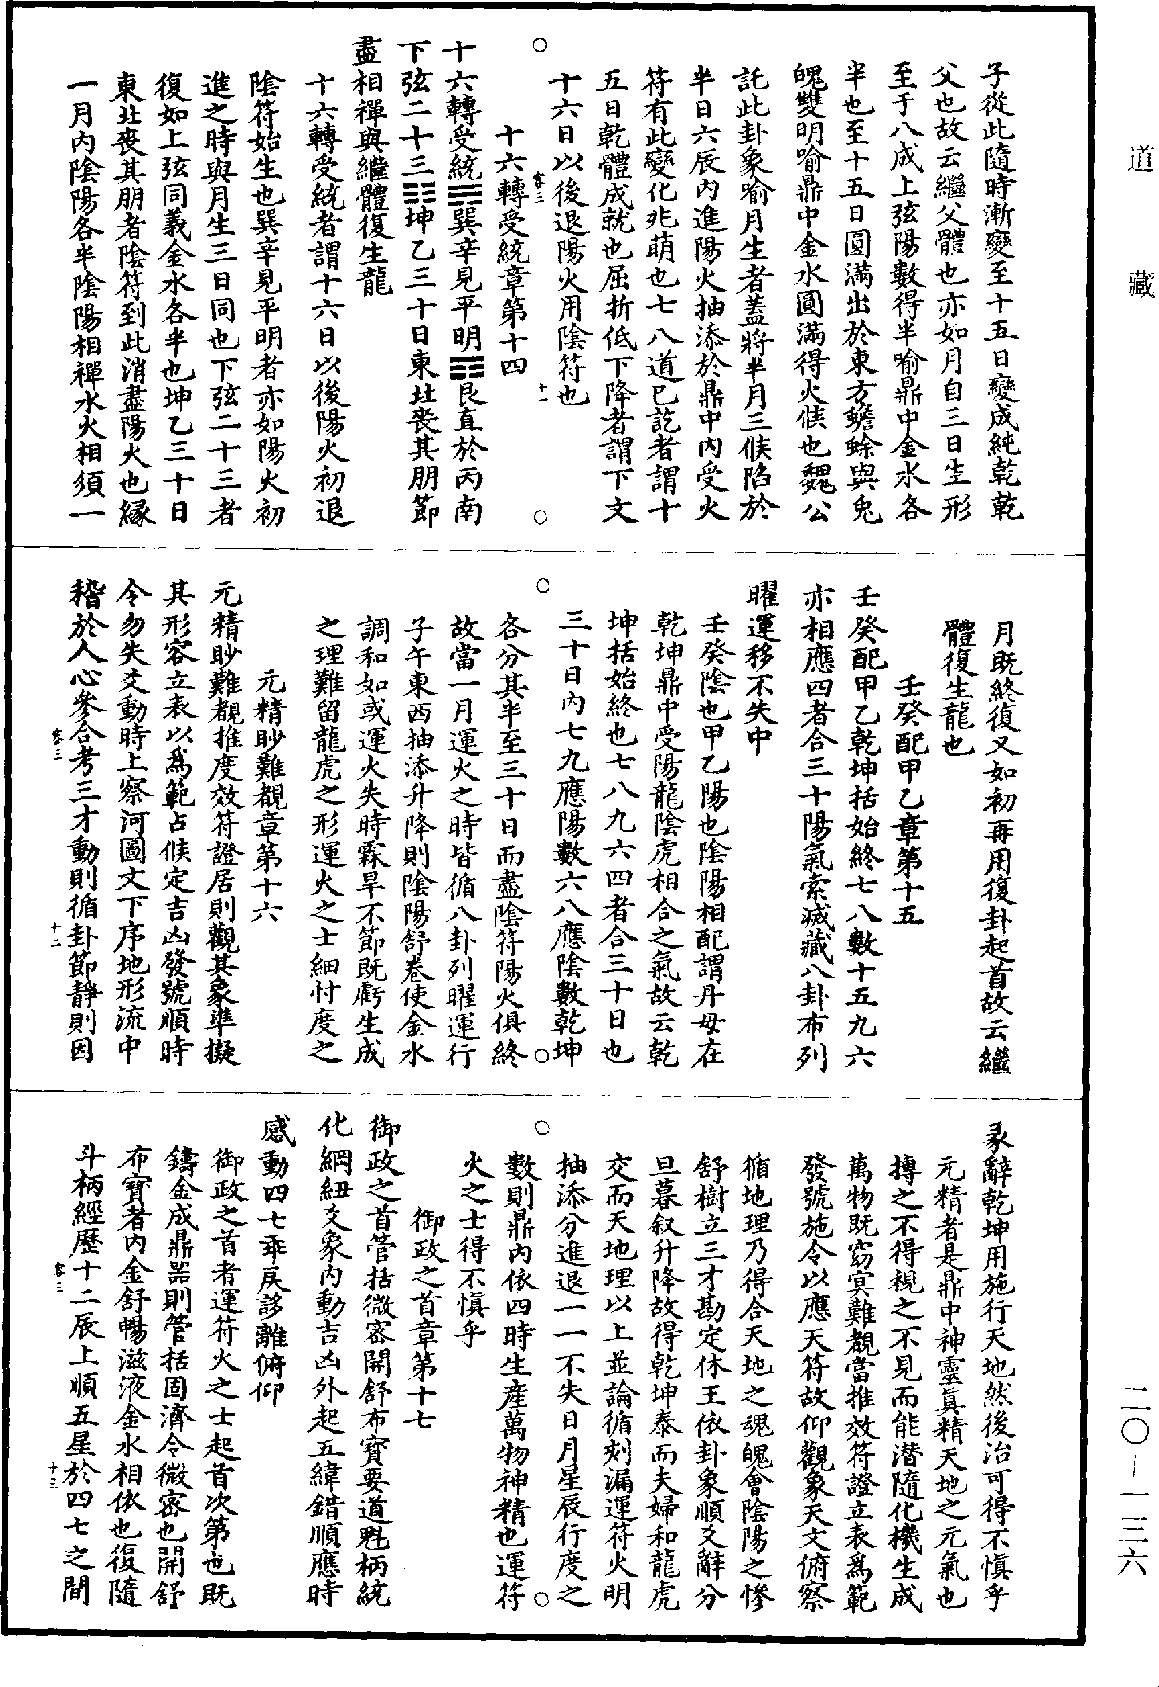 道藏
子從此隨時漸變至十五日變成純乾乾
父也故云繼父體也亦如月自三日生形
至于八成上弦陽數得半喻鼎中金水各
半也至十五日圓滿出於東方蟾蜍與兔
魄雙明喻鼎中金水圓滿得火候也魏公
託此卦象喻月生者蓋將半月三候陷於
半日六辰內進陽火抽添於鼎中內受火
符有此變化兆萌也七八道已訖者謂十
五日乾體成就也屈折低下降者謂下文
十六日以後退陽火用陰符也
卷三
十一
十六轉受統章第十四
十六轉受統☴巽辛見平明☶艮直於丙南
下弦二十三☷坤乙三十日東北喪其朋節
盡相禪與繼體復生龍
十六轉受統者謂十六日以後陽火初退
陰符始生也巽辛見平明者亦如陽火初
進之時與月生三日同也下弦二十三者
復如上弦同義金水各半也坤乙三十日
東北喪其朋者陰符到此消盡陽火也緣
一月內陰陽各半陰陽相禪水火相須一
月既終復又如初再用復卦起首故云繼
體復生龍也
壬癸配甲乙章第十五
壬癸配甲乙乾坤括始終七八數十五九六
亦相應四者合三十陽氣索滅藏八卦布列
曜運移不失中
壬癸陰也甲乙陽也陰陽相配謂丹母在
乾坤鼎中受陽龍陰虎相合之氣故云乾
坤括始終也七八九六四者合三十日也
三十日內七九應陽數六八應陰數乾坤
各分其半至三十日而盡陰符陽火俱終
故當一月運火之時皆循八卦列曜運行
子午東西抽添升降則陰陽舒卷使金水
調和如或運火失時霖旱不節既虧生成
之理難留龍虎之形運火之士細忖度之
元精眇難覩章第十六
元精眇難覩推度效符證居則觀其象準擬
其形容立表以為範占候定吉凶發號順時
令勿失爻動時上察河圖文下序地形流中
稽於人心參合考三才動則循卦節靜則因
卷三
十二
彖辭乾坤用施行天地然後治可得不慎乎
元精者是鼎中神靈真精天地之元氣也
搏之不得視之不見而能潛隨化機生成
萬物既窈冥難覩當推效符證立表為範
發號施令以應天符故仰觀象天文俯察
循地理乃得合天地之魂魄會陰陽之慘
舒樹立三才勘定休王依卦象順爻辭分
旦暮叙升降故得乾坤泰而夫婦和龍虎
交而天地理以上並論循刻漏運符火明
抽添分進退一一不失日月星辰行度之
數則鼎內依四時生產萬物神精也運符
火之士得不慎乎
御政之首章第十七
御政之首管括微密開舒布寶要道魁柄統
化綱紐爻象內動吉凶外起五緯錯順應時
感動四七乖戾誃離俯仰
御政之首者運符火之士起首次第也既
鑄金成鼎器則管括固濟令微密也開舒
布寶者內金舒暢滋液金水相依也復隨
斗柄經歷十二辰上順五星於四七之間
卷三
十三
二〇—一三六